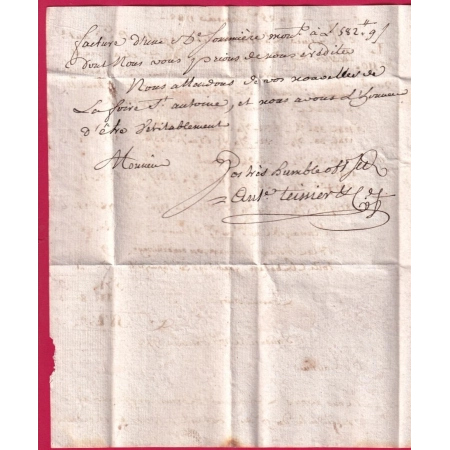 facture d'une Bte montt à L 582.tt 9s
dont Nous vous prions de nous créditer
Nous attendons de vos nouvelles de
La foire St antoine, et nous avons L'honneur
d'être Veritablement
Monsieur
Vos très humbles
Ante teissier & Ce